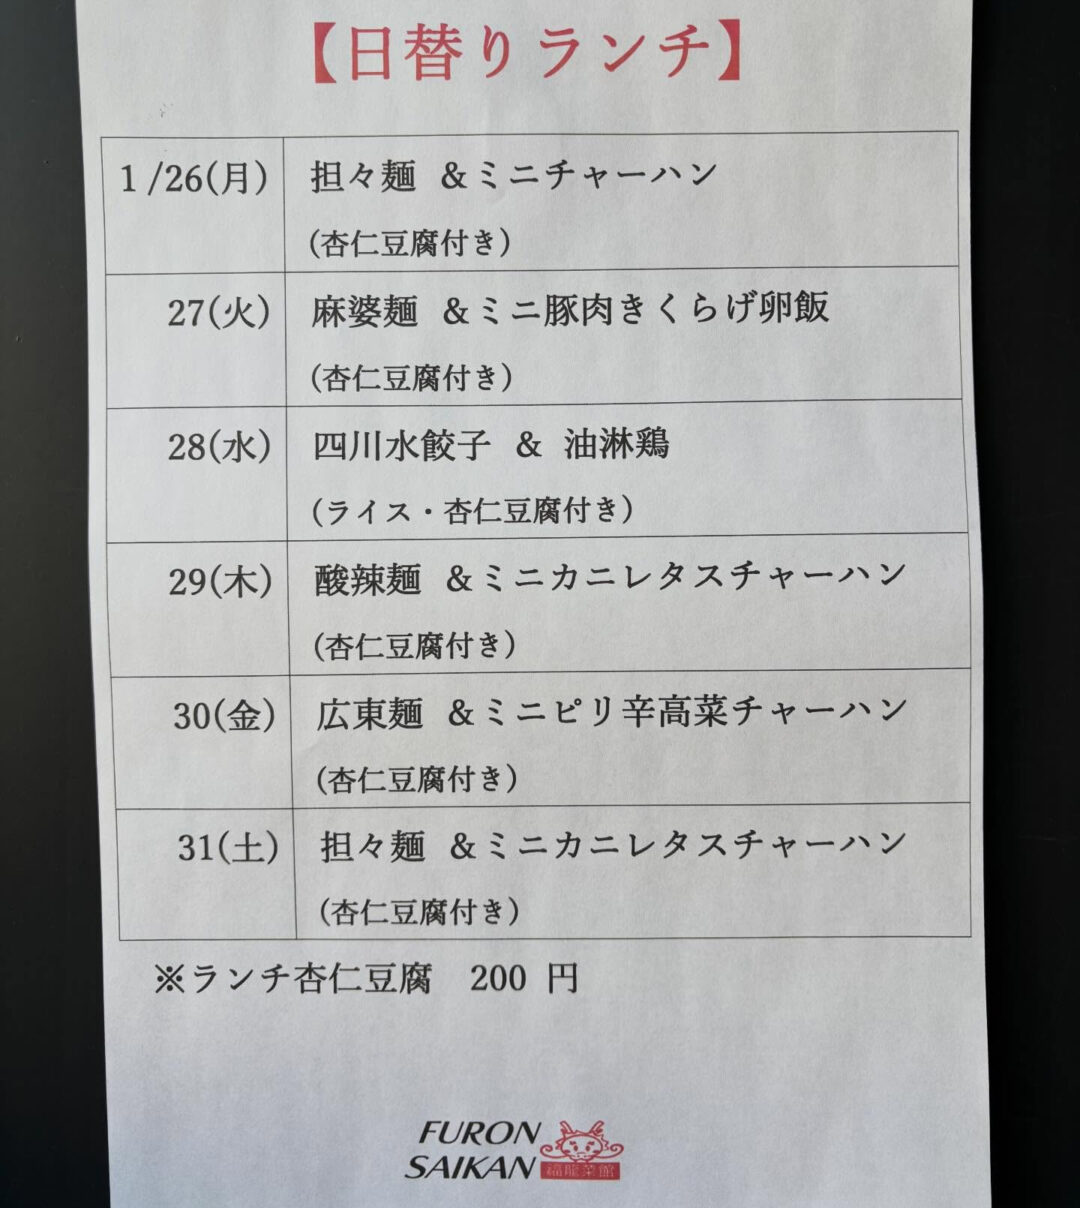 【日替りランチ】
1/26(月) 担々麺 &ミニチャーハン
(杏仁豆腐付き)
27(火) 麻婆麺 &ミニ豚肉きくらげ卵飯
(杏仁豆腐付き)
28(水) 四川水餃子 & 油淋鶏
(ライス・杏仁豆腐付き)
29(木) 酸辣麺 &ミニカニレタスチャーハン
(杏仁豆腐付き)
30(金) 広東麺 &ミニピリ辛高菜チャーハン
(杏仁豆腐付き)
31(土) 担々麺 &ミニカニレタスチャーハン
(杏仁豆腐付き)
※ランチ杏仁豆腐 200 円
FURON
SAIKAN 福龍菜館